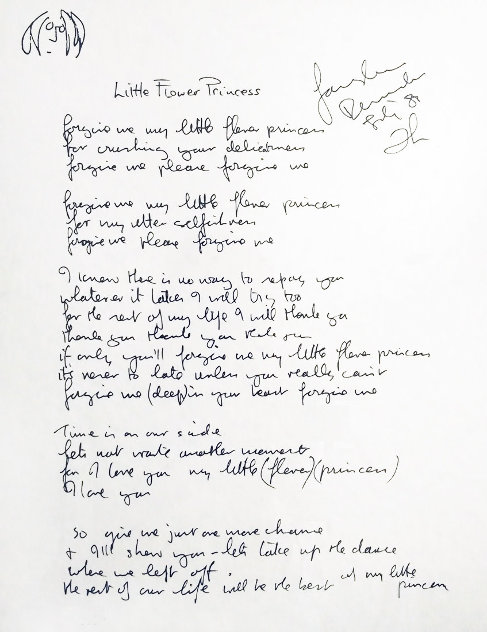 Little Flower Princess
forgive me my little flower princess
for crushing your delicateness
forgive me please forgive me
forgive me my little flower princess
for my utter selfishness
forgive me please forgive me
I know there is no way to repay you
whatever it takes I will try too
for the rest of my life I will thank you
thank you thank you thank you
if only you'll forgive me my little flower princess
it's never to late unless you really can't
forgive me (deep) in your heart forgive me
Time is on our side
lets not waste another moment
for I love you my little (flower) (princess)
I love you
so give me just one more chance
+ I'll show you - lets take up the dance
where we left off.
the rest of our life will be the best my little
princess